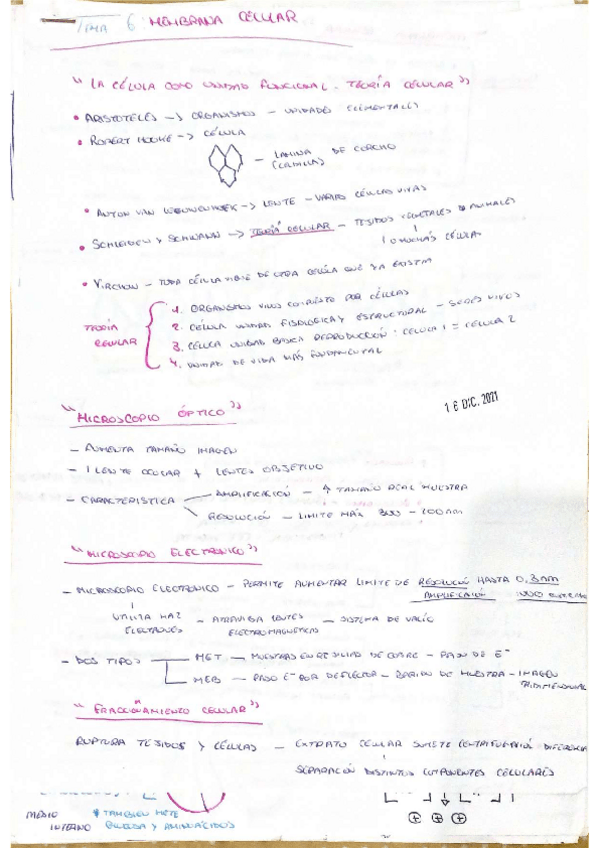 TEMA 6 MEMBRANA CÉLULAR
"LA CÉLULA COMO UNIDAD FUNCIONAL. TEORÍA CÉLULAR"
• ARISTOTELES -> ORGANISMOS - UNIDADES ELEMENTALES
• ROBERT HOOKE -> CÉLULA
- LAMINA DE CORCHO
(CELDILLAS)
• ANTON VAN -> LENTE - VARIAS CÉLULAS VIVAS
• SCHLEIDEN Y SCHWANN -> TEORÍA CELULAR - TEJIDOS VEGETALES ANIMALES
1 O MUCHAS CÉLULAS
• VIRCHOW - TODA CÉLULA VIENE DE OTRA CÉLULA QUE YA EXISTÍA
TEORÍA CELULAR
1. ORGANISMOS VIVOS COMPUESTO POR CÉLULAS
2. CÉLULA UNIDAD FISIOLOGICA Y ESTRUCTURAL - SERES VIVOS
3. CÉLULA UNIDAD BASICA REPRODUCCIÓN: CÉLULA 1 = CÉLULA 2
4. UNIDAD DE VIDA MÁS FUNDAMENTAL
"MICROSCOPIO ÓPTICO"
16 DIC. 2021
- AUMENTA TAMAÑO IMAGEN
- 1 LENTE OCULAR + LENTES OBJETIVO
- CARACTERISTICA
AMPLIFICACIÓN - TAMAÑO REAL MUESTRA
RESOLUCIÓN - LIMITE MÁX 300 - 200nm
"MICROSCOPIO ELECTRONICO"
- MICROSCOPIO ELECTRONICO - PERMITE AUMENTAR LIMITE DE RESOLUCIÓN HASTA 0,3nm
AMPLIFICACIÓN
UTILIZA HAZ ELECTRONES - ATRAVIESA LENTES ELECTROMAGNÉTICAS - SISTEMA DE VACÍO
- DOS TIPOS
MET - MUESTRAS EN REJILLAS DE COBRE - PASO DE E⁻
MEB - PASO E⁻ POR DEFLECTOR - BARIDO DE MUESTRA - IMAGEN
TRIDIMENSIONAL
"FRACCIONAMIENTO CELULAR"
RUPTURA TEJIDOS Y CÉLULAS - EXTRATO CELULAR SOMETE CENTRIFUGACIÓN DIFERENCIA
SEPARACIÓN DISTINTOS COMPONENTES CELULARES
MEDIO INTERNO
* TAMBIEN METE
GLUCOSA Y AMINOÁCIDOS
⊕ ⊕ ⊕